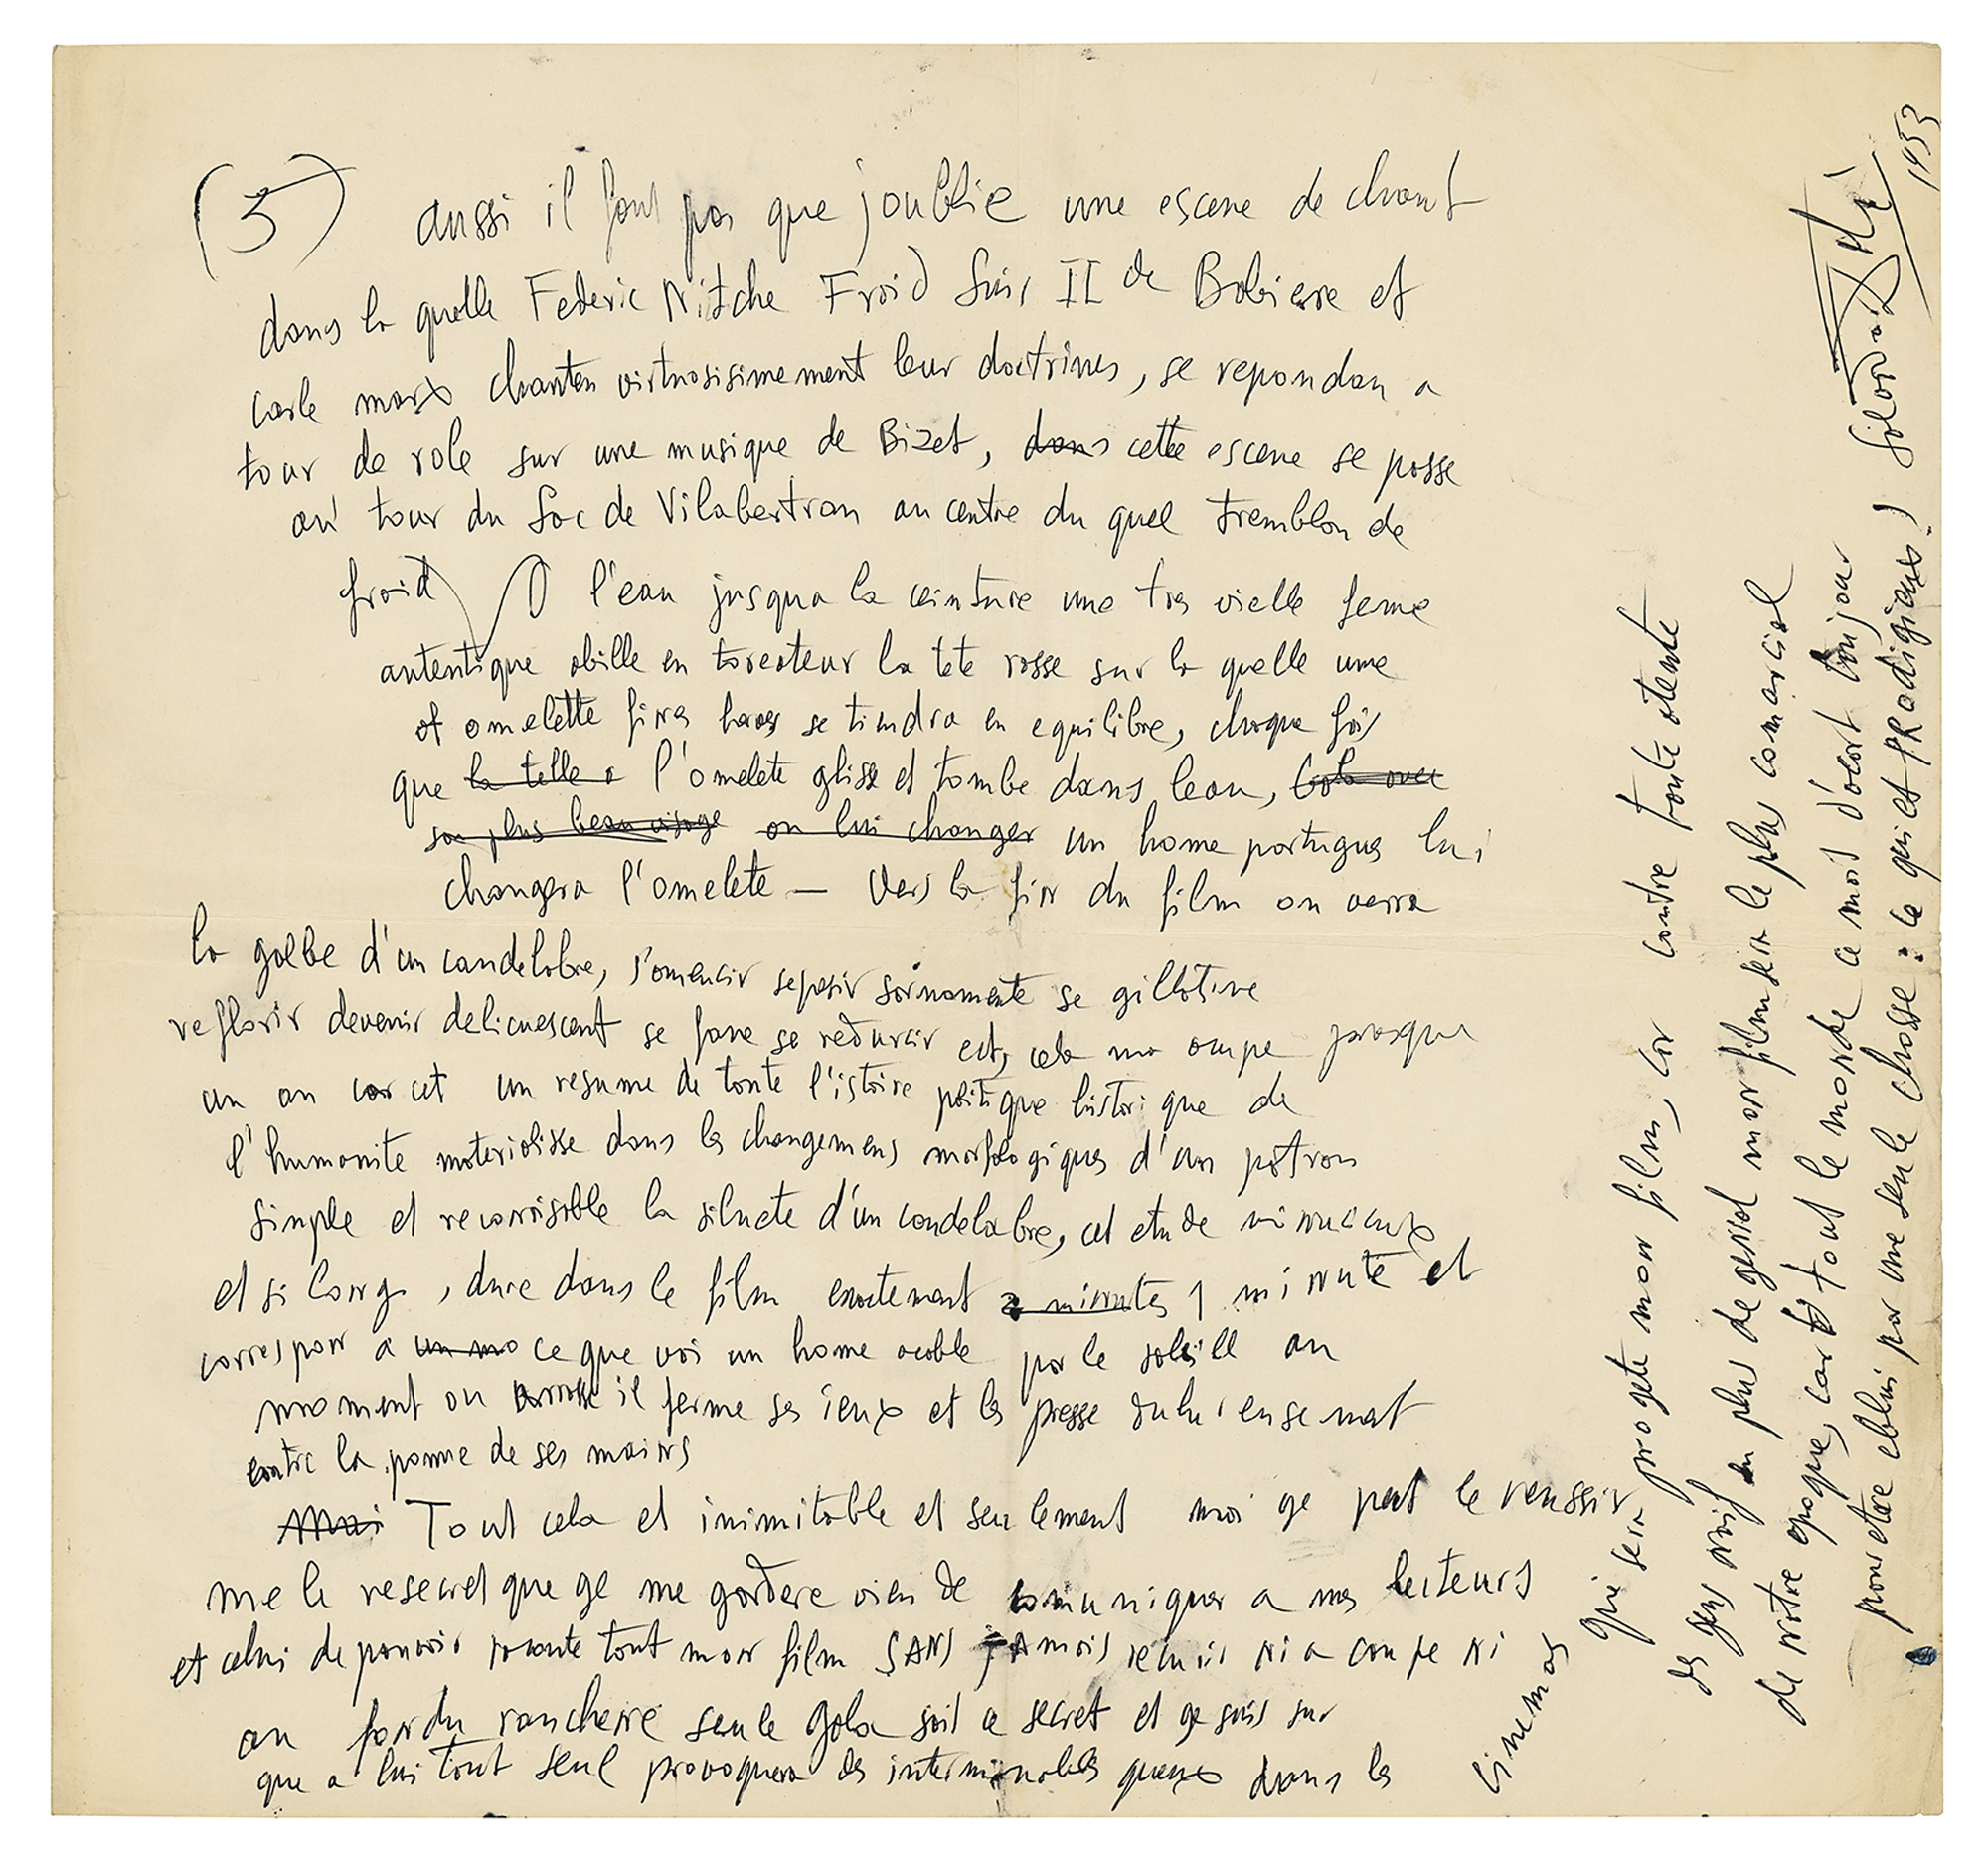 (5) aussi il fout pas que j'oublie une escene de chant
dans la quelle Federic Nitche Froid Luis II de Babiere et
carle marx chanten virtuosisimement leur doctrines, se repondan a
tour de role sur une musique de Bizet, dans cette escene se passe
au tour du Lac de Vilabertran au centre du quel tremblan de
froid l'eau jusqua la ceinture une tres vielle feme
autentique abille en toreateur la tete rasse sur la quelle une
omelette fines se tiendra en equilibre, chaque fois
que la telle a l'omelete glisse et tombe dans leau,
son plus beau visage on lui changer un home portugues lui
changera l'omelete — Vers la fin du film on verra
la galbe d'un candelabre, s'omencir sepesir se gillotine
reflorir devenir delicuescent se fane se redurcir ect, cela ma ocupe presque
un an car cet un resume de toute l'istoire politique historique de
l'humanite materialisse dans les changemens morfologiques d'un patron
simple et reconaisible la siluete d'un candelabre, cet etude minucieux
et si long, dure dans le film exactement 2 minutes 1 minute et
correspon a ce que voi un home avble par le soleill au
moment ou il ferme ses ieux et les presse
contre la pomme de ses mains
Mai Tout cela et inimitable et seulement moi ge peut le reussir
me le que ge me gardere vien de comuniquer a mes lecteurs
et celui de pouvoir tout mon film SANS JAmais reunir ni a coupe ni
au fon du seule Gala sait ce secret et ge suis sur
que a lui tout seul provoquera des interminables queues dans les
cinemas
qui sera progete mon film, car contre toute atente
des gens naif du plus de genial mon film sera le plus comercial
de notre epoque, car tout le monde ce mais d'acort toujour
pour etre eblui par une seule chosse : ce qui et PRodigieux!
Salvador Dali
1953